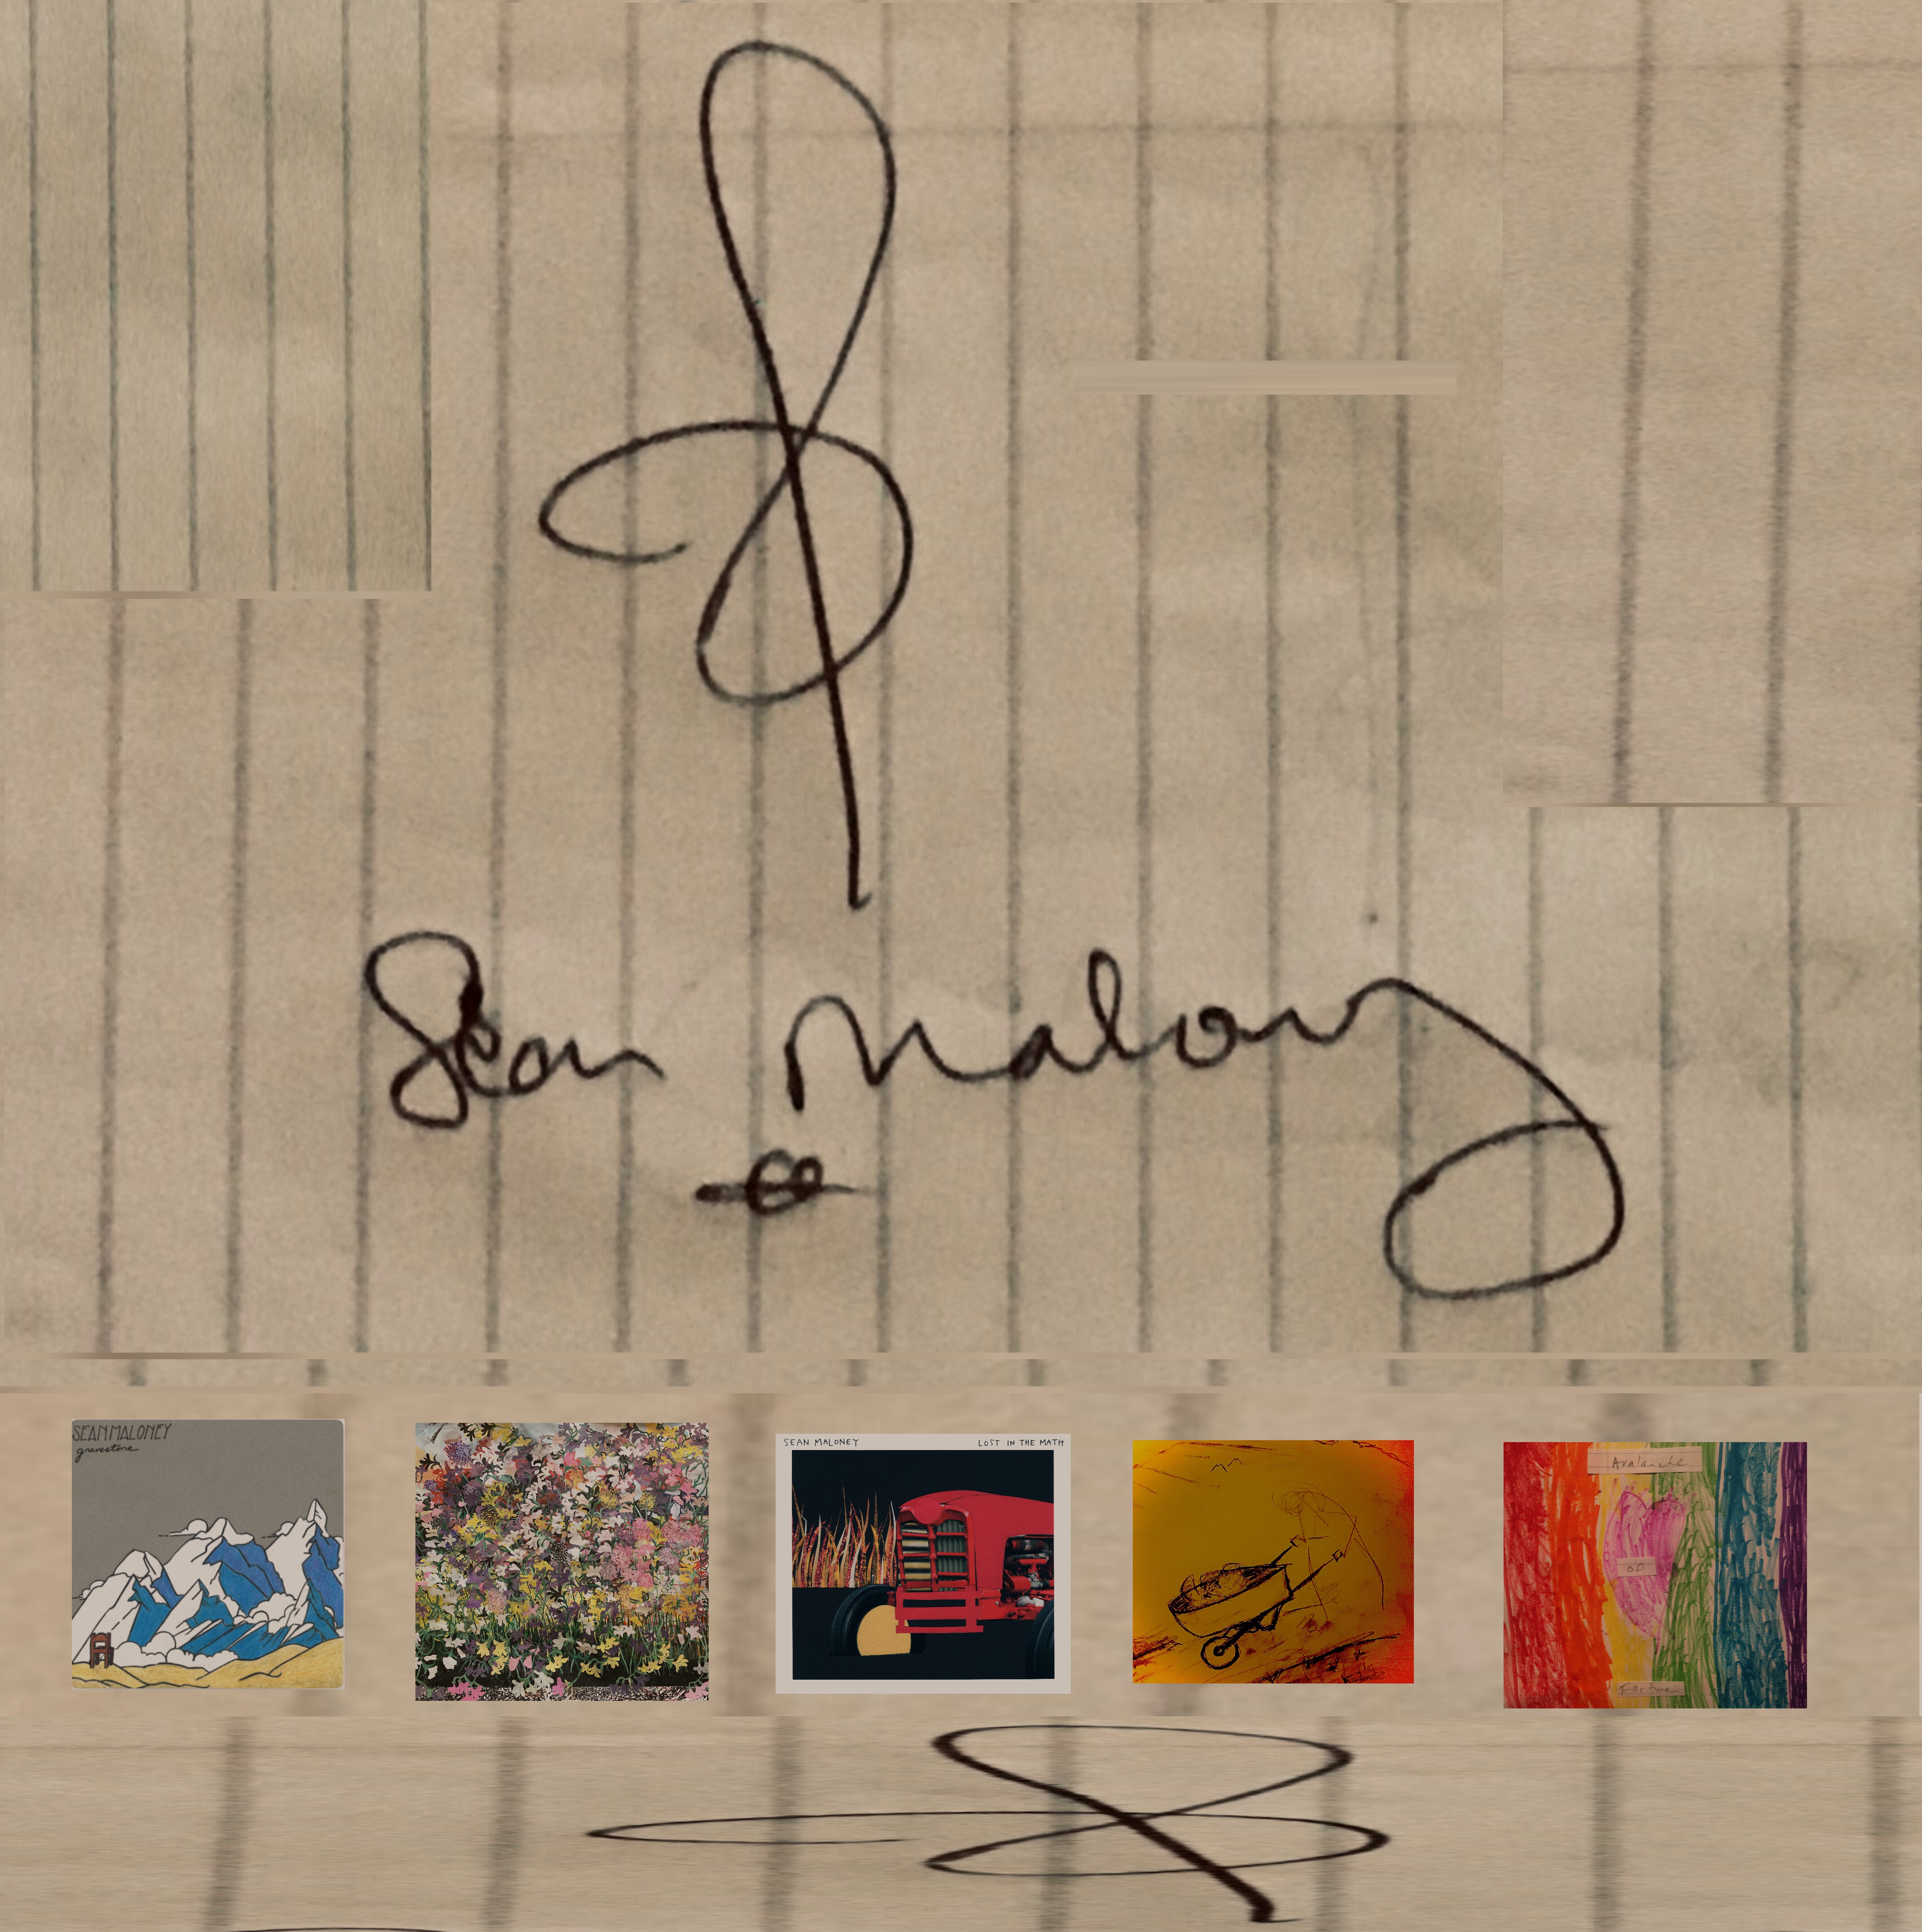 Sean Maloney
SEAN MALONEY
gravestone
SEAN MALONEY LOST IN THE MATH
Avalanche
of
Fortune